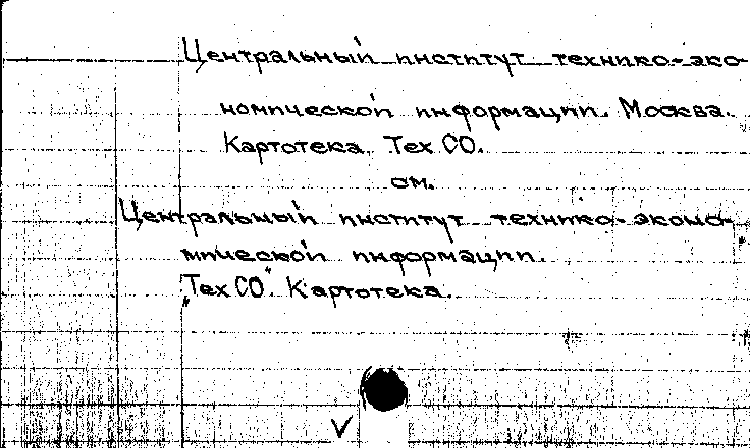 Центральный институт технико-эко-
номической информации. Москва.
Картотека. ТехСО.
см.
Центральный институт технико-эконо-
мической информации.
„ТехСО". Картотека.